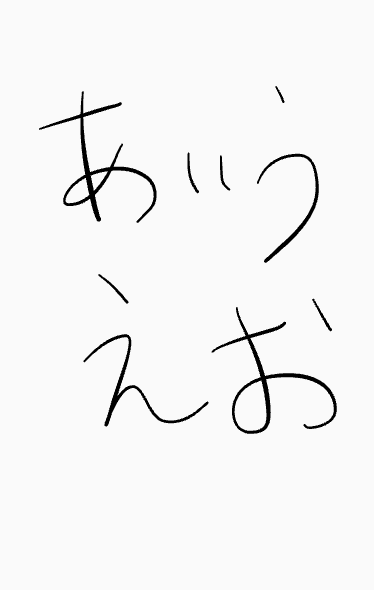 あいう
えお